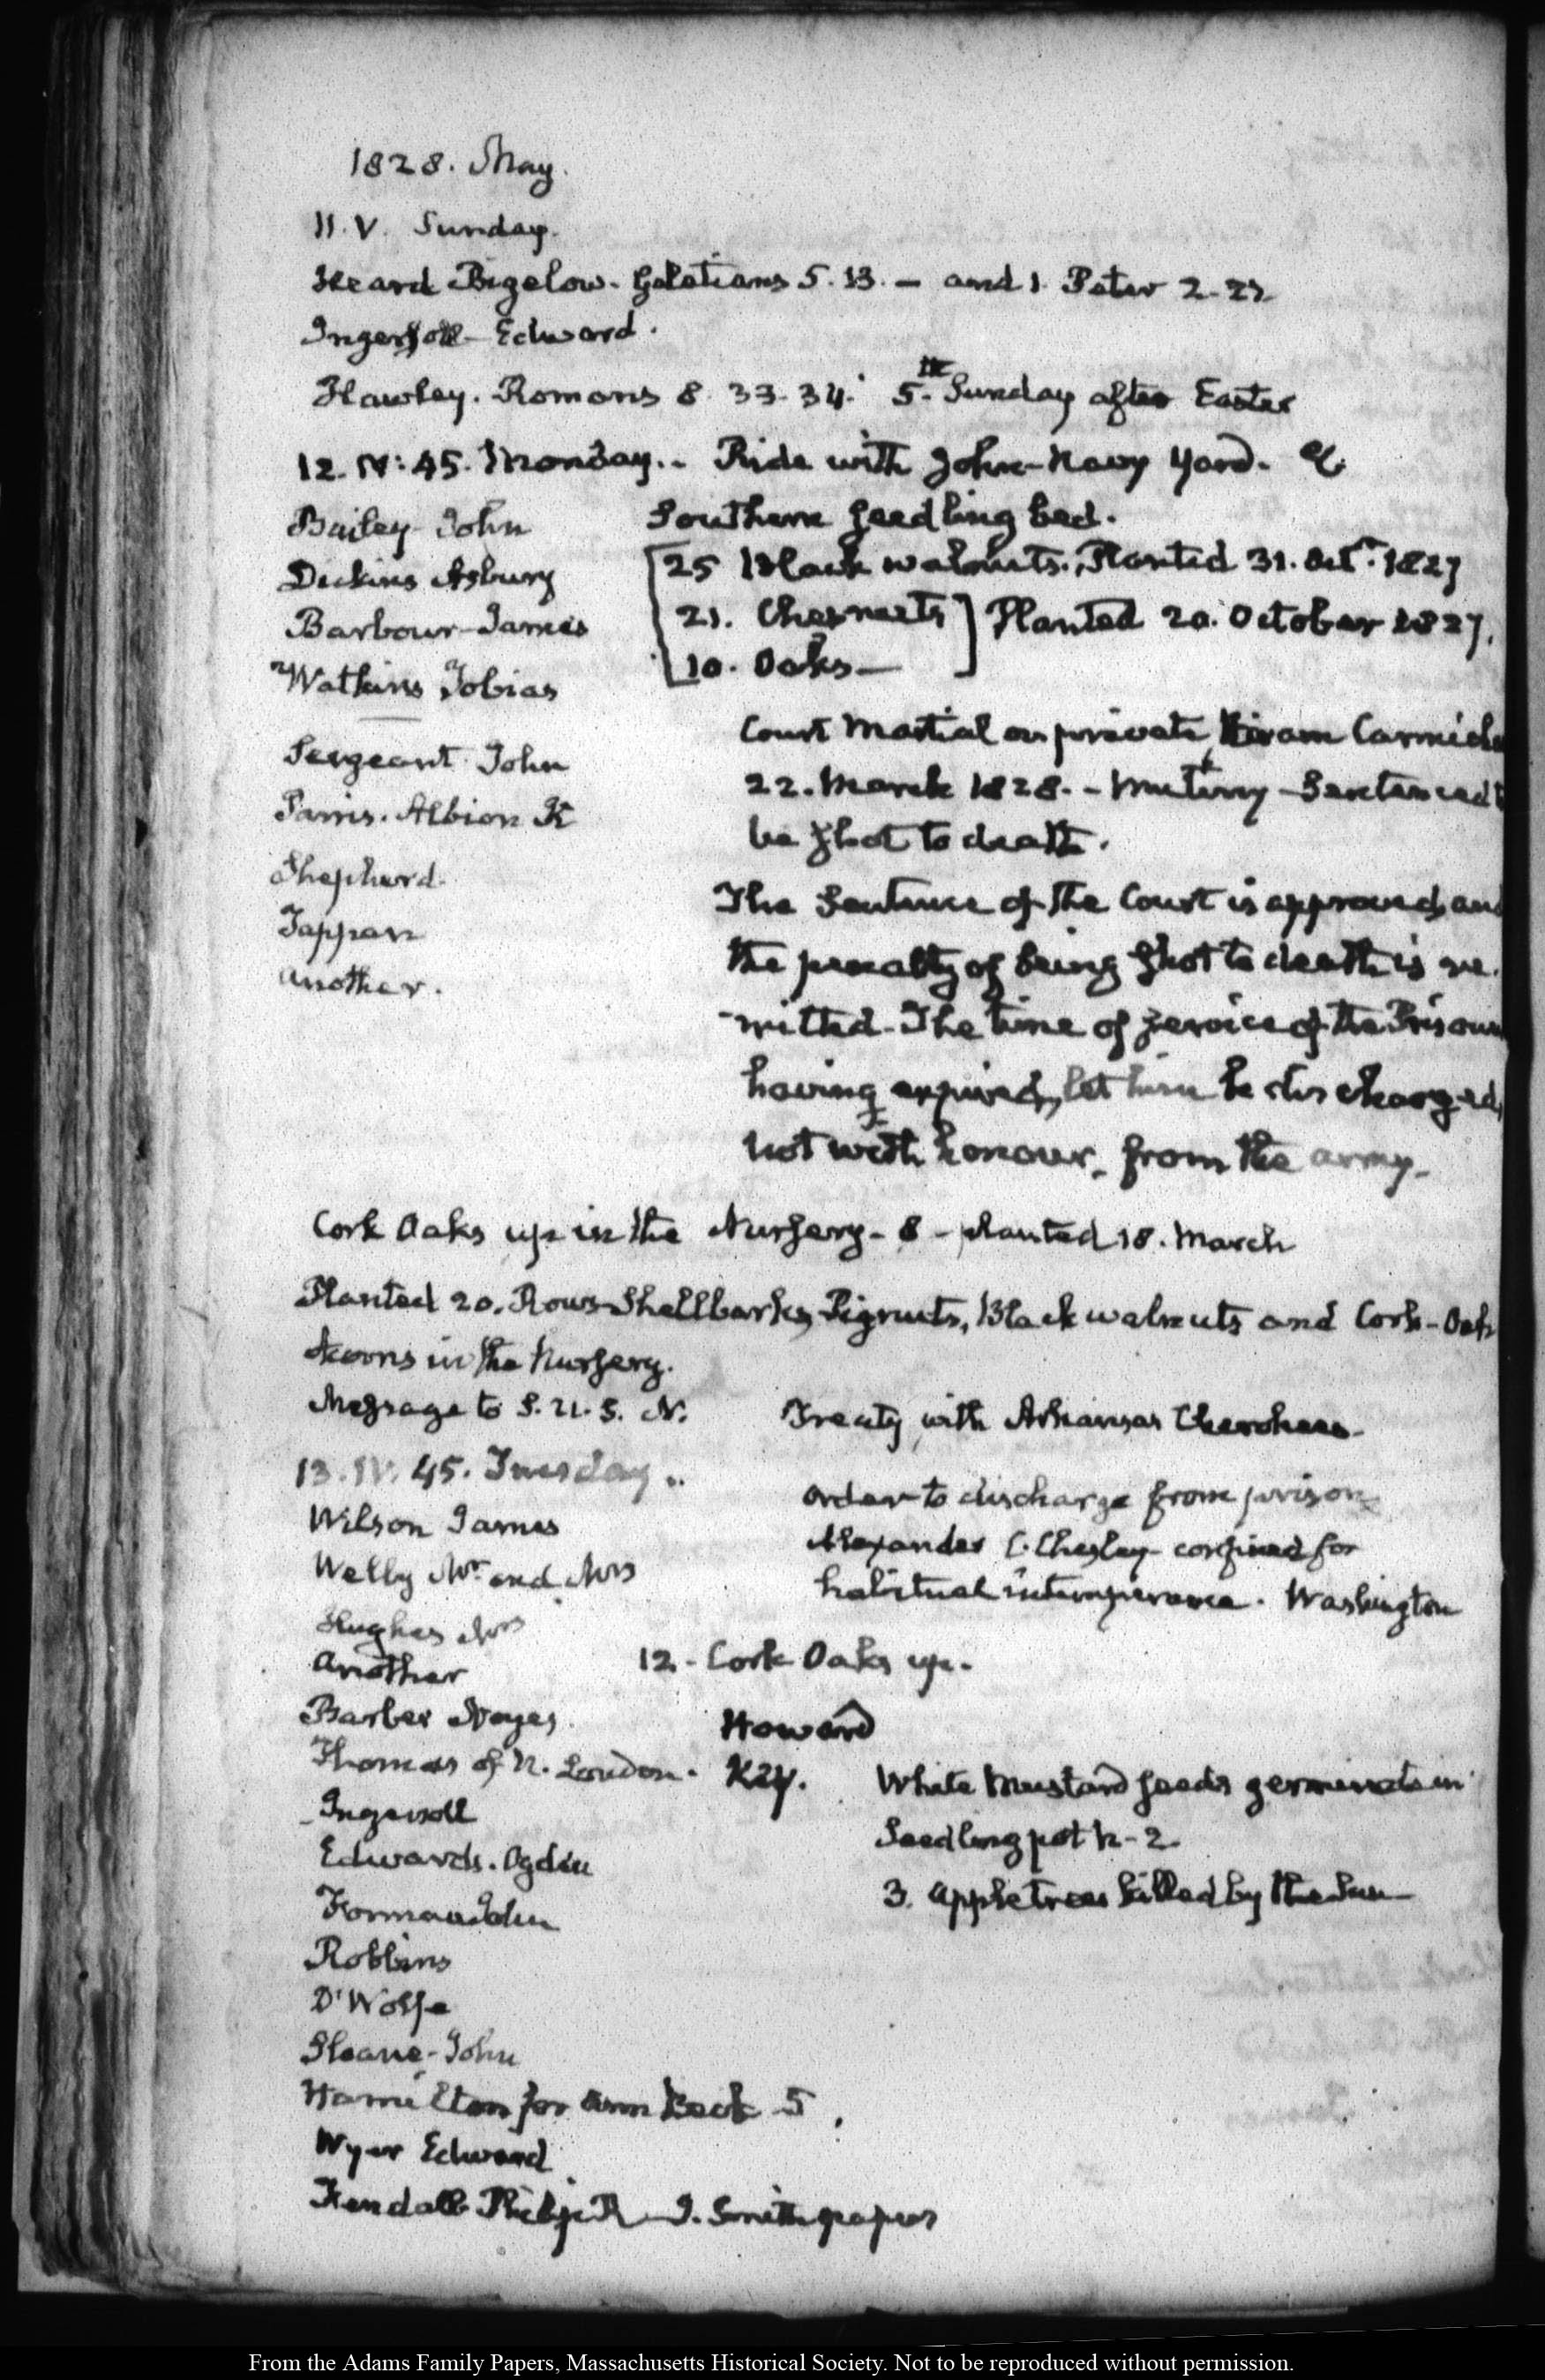 1828. May.
11. V. Sunday.
Heard Bigelow. Galatians 5. 13. — and 1. Peter 2. 22
Ingersoll - Edward.
Hawley. Romans 8. 33. 34. 5.th Sunday after Easter
12. IV: 45. Monday. - Ride with John - Navy Yard. &c
Bailey - John
Dickins Asbury
Barbour - James
Watkins Tobias
Sergeant John
Parris. Albion K
Shepherd.
Tappan
another.
Southern seedling bed.
25 Black walnuts. Planted 31. Octr. 1827
21. Chesnuts
10. Oaks —
Planted 20. October 1827.
Court Martial on private Hiram
22. March 1828. - Mutiny - Sentenced
be shot to death.
The Sentence of the Court is approved, and
the penalty of being shot to death is re-
-mitted. The time of service of the Prisoner
having expired, let him be discharged,
not with honour, from the army.
Cork Oaks up in the Nursery - 8 - planted 18. March
Planted 20. Rows Shellbarks, Pignuts, Black walnuts and Cork - Oak
Acorns in the Nursery.
Message to S. U. S. N. Treaty with Arkansas Cherokees.
13. IV. 45. Tuesday.
Wilson James
Welby Mr. and Mrs
Hughes Mrs
another
Barber Noyes
Thomas of N. London.
Ingersoll
Edwards. Ogden
Forman John
Robbins
D'Wolfe
Sloane - John
Hamilton for Ann Beck 5.
Wyer Edward
Fendall Philip R - J. Smith papers
Order to discharge from prison
Alexander C. Chesley confined for
habitual intemperance. Washington
12. Cork Oaks up.
Howard
K24.
White Mustard seeds germinate in
Seedling pot N - 2.
3. Apple trees killed by the Sun
From the Adams Family Papers, Massachusetts Historical Society. Not to be reproduced without permission.